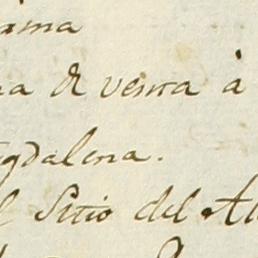 ama
a de venta à
gdalena.
l Sitio del Al